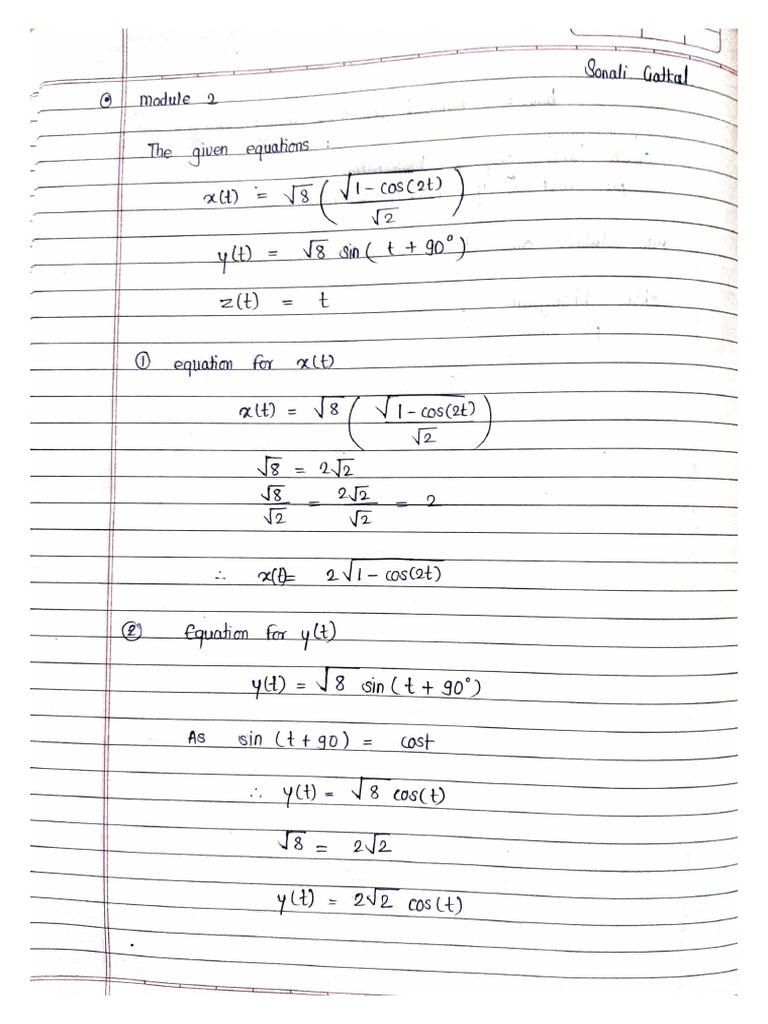 Sonali Gatkal
Module 2
The given equations :
x(t) = √8 ( √1 - cos(2t) / √2 )
y(t) = √8 sin ( t + 90° )
z(t) = t
① equation for x(t)
x(t) = √8 ( √1 - cos(2t) / √2 )
√8 = 2√2
√8 / √2 = 2√2 / √2 = 2
∴ x(t)= 2√1 - cos(2t)
② Equation for y(t)
y(t) = √8 sin ( t + 90° )
As sin ( t + 90 ) = cost
∴ y(t) = √8 cos(t)
√8 = 2√2
y(t) = 2√2 cos(t)